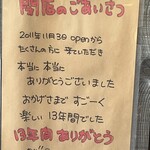 閉店のごあいさつ
2011年11月3日 openから
たくさんの方に 来ていただき
本当に 本当に
ありがとうございました
おかげさまで すごーく
楽しい 13年間でした
13年間 ありがとう